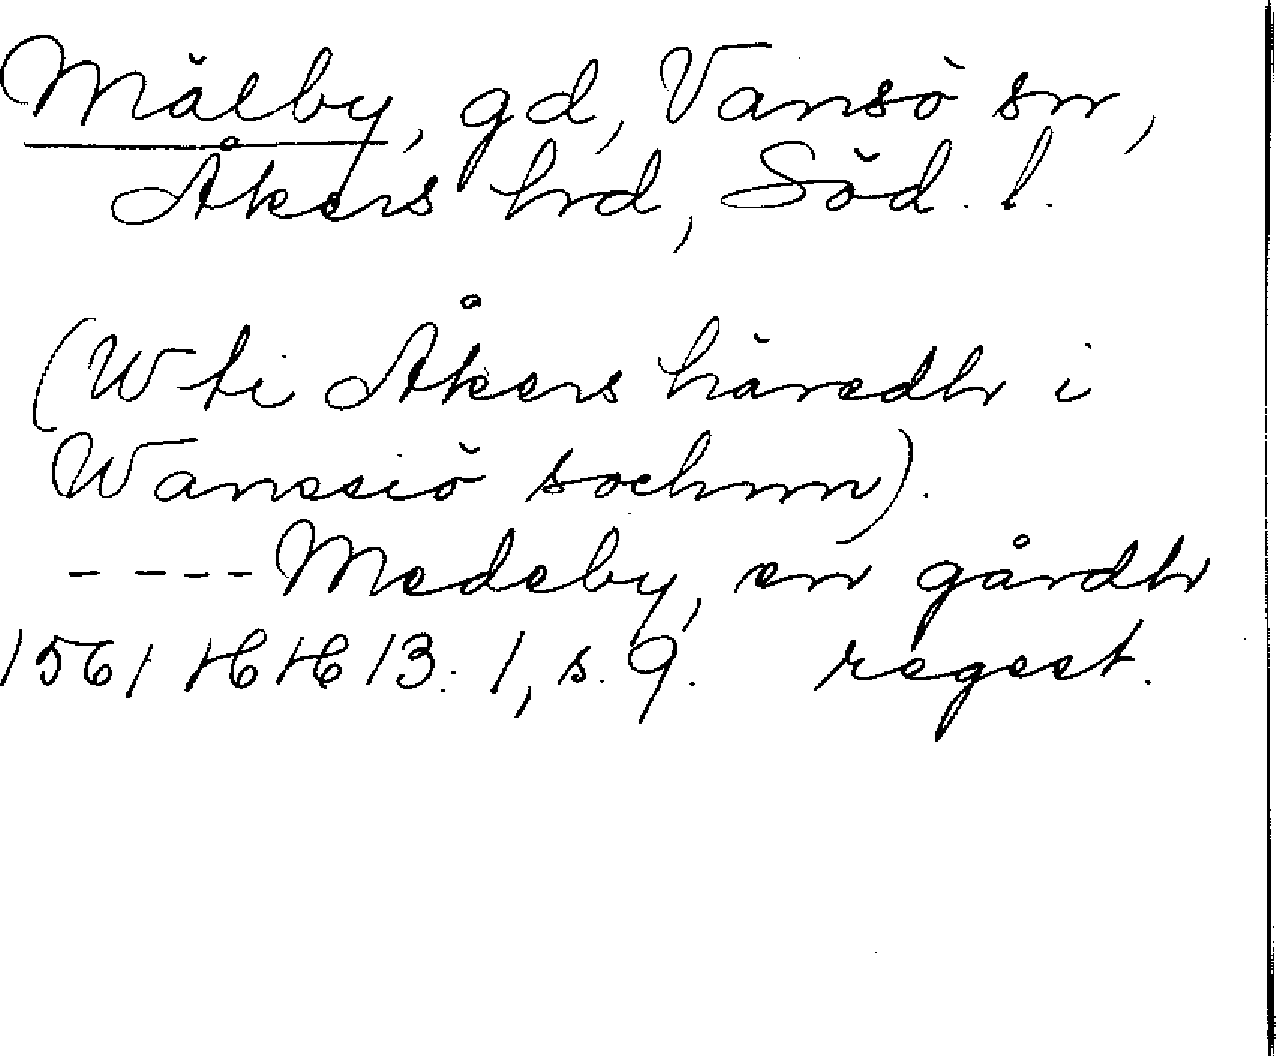 Mälby, gd, Vansö sn,
Åkers hd, Söd. l.
(Wti Åkers häredh i
Wanssiö sochnn).
---- Medeby, en gårdh
1561 HH 13: 1, s. 9. regest.